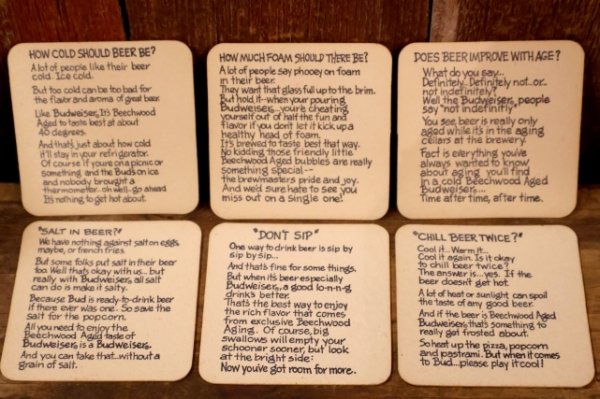 HOW COLD SHOULD BEER BE?
A lot of people like their beer
cold. Ice cold.
But too cold can be too bad for
the flavor and aroma of great beer.
Like Budweiser®. It's Beechwood
Aged to taste best at about
40 degrees.
And that's just about how cold
it'll stay in your refrigerator.
Of course if you're on a picnic or
something and the Bud's on ice
and nobody brought a
thermometer...oh well..go ahead
It's nothing to get hot about.
HOW MUCH FOAM SHOULD THERE BE?
A lot of people say phooey on foam
in their beer.
They want that glass full up to the brim.
But hold it--when your pouring
Budweiser®...you're cheating
yourself out of half the fun and
flavor if you don't let it kick up a
healthy head of foam.
It's brewed to taste best that way.
No kidding those friendly little
Beechwood Aged bubbles are really
something special--
the brewmasters pride and joy.
And we'd sure hate to see you
miss out on a single one!
DOES BEER IMPROVE WITH AGE?
What do you say...
Definitely..Definitely not..or..
not indefinitely?
Well the Budweiser® people
say "not indefinitly"
You see, beer is really only
aged while it's in the aging
cellars at the brewery.
Fact is everything you've
always wanted to know
about aging you'll find
in a cold Beechwood Aged
Budweiser®....
Time after time, after time.
"SALT IN BEER?"
We have nothing against salt on eggs,
maybe, or french fries.
But some folks put salt in their beer
too. Well that's okay with us...but
really with Budweiser®, all salt
can do is make it salty.
Because Bud is ready-to-drink beer
if there ever was one. So save the
salt for the popcorn.
All you need to enjoy the
Beechwood Aged taste of
Budweiser® is a Budweiser®.
And you can take that..without a
grain of salt.
"DON'T SIP"
One way to drink beer is sip by
sip by sip...
And that's fine for some things.
But when it's beer especially
Budweiser®, a good lo-n-n-g
drink's better.
That's the best way to enjoy
the rich flavor that comes
from exclusive Beechwood
Aging. Of course, big
swallows will empty your
schooner sooner, but look
at the bright side:
Now you've got room for more.
"CHILL BEER TWICE?"
Cool it...Warm it...
Cool it again. Is it okay
to chill beer twice?
The answer is...yes. If the
beer doesn't get hot.
A lot of heat or sunlight can spoil
the taste of any good beer.
And if the beer is Beechwood Aged
Budweiser® that's something to
really get frosted about.
So heat up the pizza, popcorn
and pastrami. But when it comes
to Bud...please play it cool!